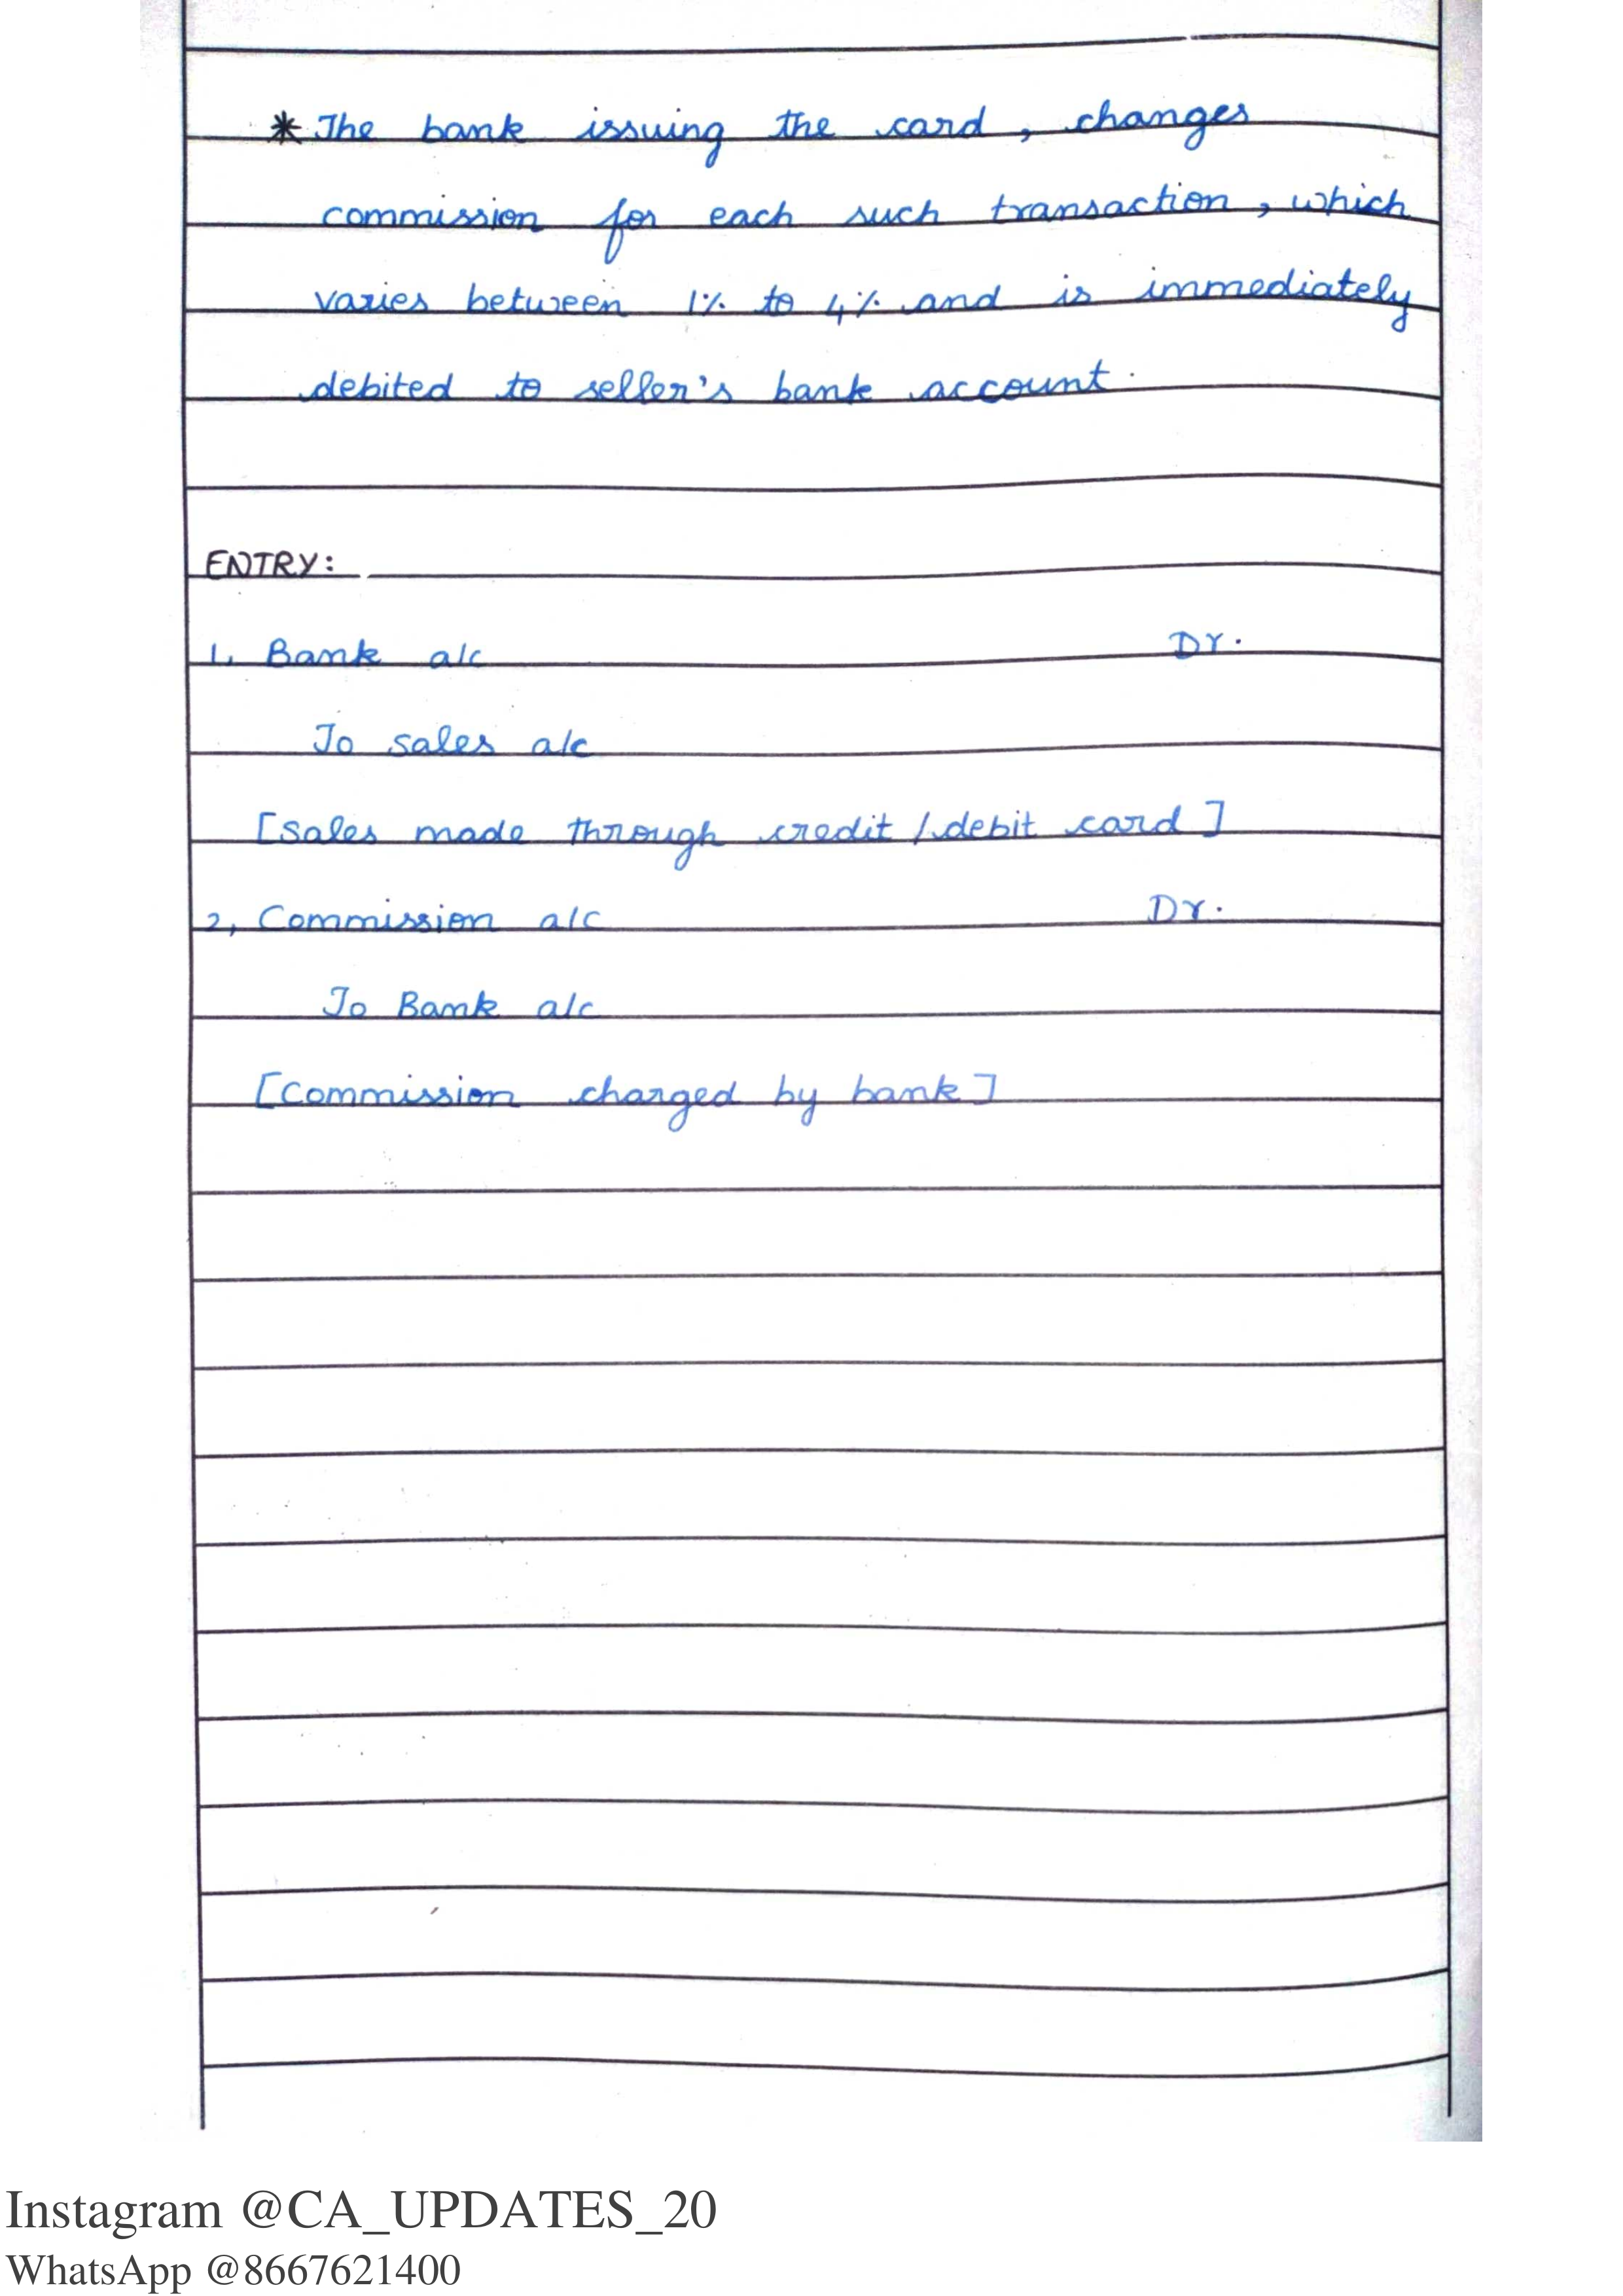 * The bank issuing the card, changes
commission for each such transaction, which
varies between 1% to 4% and is immediately
debited to seller's bank account.
ENTRY:
1, Bank a/c Dr.
To sales a/c
[sales made through credit / debit card]
2, Commission a/c Dr.
To Bank a/c
[Commission charged by bank]
Instagram @CA_UPDATES_20
WhatsApp @8667621400